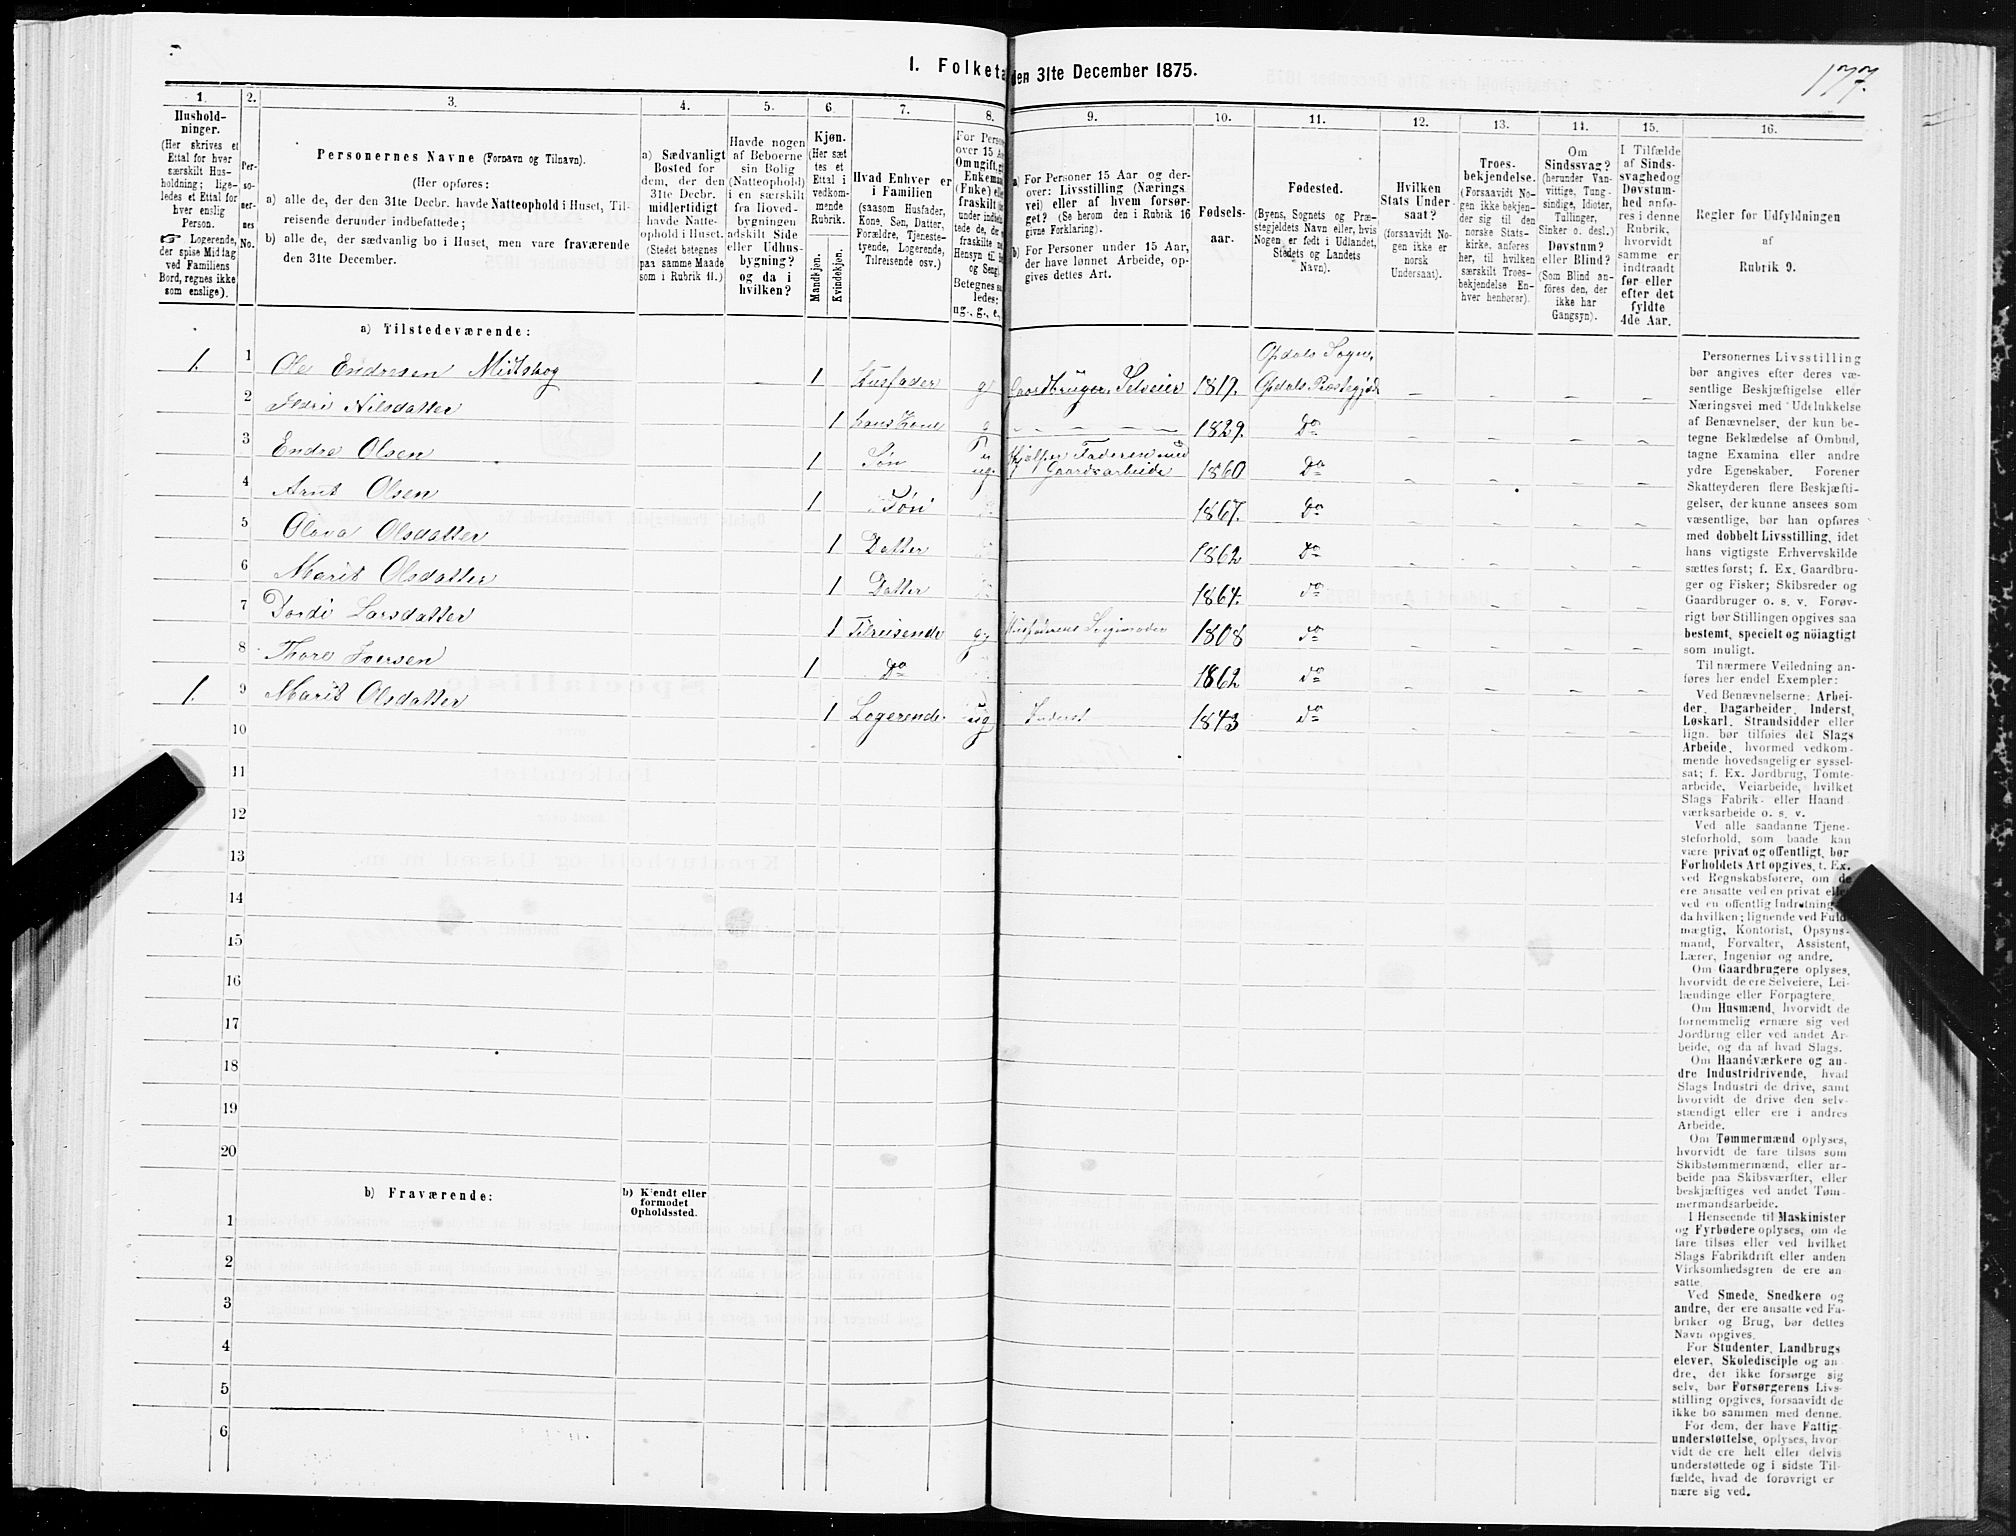 177.
I. Folketa den 31te December 1875.
1. 2. 3. 4. 5. 6 7. 8. 9. 10. 11. 12. 13. 14. 15. 16.
Hushold-
ninger.
(Her skrives et
Ettal for hver
særskilt Hus-
holdning; lige-
ledes et Ettal for
hver enslig
Person.
☞ Logerende,
der spise Middag
ved Familiens
Bord, regnes ikke
som enslige).
Per-
so-
ner-
nes
No.
Personernes Navne (Fornavn og Tilnavn).
(Her opføres:
a) alle de, der den 31te Decbr. havde Natteophold i Huset, Til-
reisende derunder indbefattede;
b) alle de, der sædvanlig bo i Huset, men vare fraværende
den 31te December.
a) Sædvanligt
Bosted for
dem, der den
31te Decbr.
midlertidigt
havde Natte-
ophold i Huset.
(Stedet betegnes
paa samme Maade
som i Rubrik 11.)
Havde nogen
af Beboerne
sin Bolig
(Natteophold)
i en særskilt
fra Hoved-
bygningen
adskilt Side
eller Udhus-
bygning?
og da i
hvilken?
Kjøn.
(Her sæt
tes et
Ettal i
vedkom-
mende
Rubrik.
Mandkjøn.
Kvindekjøn.
Hvad Enhver er
i Familien
(saasom Husfader,
Kone, Søn, Datter,
Forældre, Tjeneste-
tyende, Logerende,
Tilreisende osv.)
For Perso
over 15 Aa
Om ugift, g
Enkema
(Fnke) elle
fraskilt
under indbe
tede de, de
fraskilte
Hensyn til B
og Seng
Betegnes sa
ledes:
ug., g., e,
a) For Personer 15 Aar og der-
over: Livsstilling (Nærings
vei) eller af hvem forsør-
get? (Se herom den i Rubrik 16
givne Forklaring).
b) For Personer under 15 Aar,
der have lønnet Arbeide, op-
gives dettes Art.
Fødsels-
aar.
Fødested.
(Byens, Sognets og Præ-
stegjeldets Navn eller, hvis
Nogen er født i Udlandet,
Stedets og Landets
Navn).
Hvilken
Stats Under-
saat?
(forsaavidt No-
gen ikke er
norsk
Undersaat).
Troes-
bekjendelse.
(Forsaavidt No-
gen ikke bekjen-
der sig til den
norske Stats-
kirke, anføres
her, til hvilken
særskilt Troes-
bekjendelse En-
hver henhører).
Om
Sindssvag?
(herunder Van-
vittige, Tung-
sindige, Idioter,
Tullinger,
Sinker o. desl.)
Døvstum?
eller Blind?
(Som Blind an-
føres den, der
ikke har
Gangsyn).
I Tilfælde
af Sinds-
svaghed og
Døvstum-
hed anfø-
res i denne
Rubrik,
hvorvidt
samme er
indtraadt
før eller
efter det
fyldte
4de Aar.
Regler for Udfyldningen
af
Rubrik 9.
a) Tilstedeværende:
1. 1 Ole Endresen Midtskog 1 Husfader g Gaardbruger, Selveier 1819. Opdals Sogn, Opdals Præstegjæld
2 Ildri Nilsdatter 1 hans Kone g 1829. Do
3 Endre Olsen 1 Søn ug. Hjælper Faderen med Gaardsarbeide 1860 Do
4 Arnt Olsen 1 Søn 1867. Do
5 Olava Olsdatter 1 Datter 1862 Do
6 Marit Olsdatter 1 Datter 1864. do
7 Dordi Larsdatter 1 Tilreisende 1808 do
8 Thore Iversen 1 Do 1862 do
1. 9 Marit Olsdatter 1 Logerende ug Inderst 1843 do
10
11
12
13
14
15
16
17
18
19
20
b) Fraværende: b) Kjendt eller
formodet
Opholdssted.
1
2
3
4
5
6
Personernes Livsstilling
bør angives efter deres væ-
sentlige Beskjæftigelse eller
Næringsvei med Udelukkelse
af Benævnelser, der kun be-
tegne Beklædelse af Ombud,
tagne Examina eller andre
ydre Egenskaber. Forener
Skatteyderen flere Beskjæfti-
gelser, der kunne ansees som
væsentlige, bør han opføres
med dobbelt Livsstilling, idet
hans vigtigste Erhvervskilde
sættes først; f. Ex. Gaardbru-
ger og Fisker; Skibsreder og
Gaardbruger o. s. v. Forøv-
rigt bør Stillingen opgives saa
bestemt, specielt og nöiagtigt
som muligt.
Til nærmere Veiledning an-
føres her endel Exempler:
Ved Benævnelserne: Arbei-
der, Dagarbeider, Inderst,
Løskarl, Strandsidder eller
lign. bør tilføies det Slags
Arbeide, hvormed vedkom-
mende hovedsagelig er syssel-
sat; f. Ex. Jordbrug, Tomte-
arbeide, Veiarbeide, hvilket
Slags Fabrik- eller Haand
værksarbeide o. s. v.
Ved alle saadanne Tjene-
steforhold, som baade kan
være privat og offentligt, bør
Forholdets Art opgives, t. Ex.
ved Regnskabsførere, om de
ere ansatte ved en privat eller
ved en offentlig Indretning og
da hvilken; lignende ved Fuld-
mægtig, Kontorist, Opsyns-
mand, Forvalter, Assistent,
Lærer, Ingeniør og andre.
Om Gaardbrugere oplyses,
hvorvidt de ere Selveiere, Lei-
lændinge eller Forpagtere.
Om Husmænd, hvorvidt de
fornemmelig ernære sig ved
Jordbrug eller ved andet Ar-
beide, og da af hvad Slags.
Om Haandværkere og an-
dre Industridrivende, hvad
Slags Industri de drive, samt
hvorvidt de drive den selv-
stændigt eller ere i andres
Arbeide.
Om Tømmermænd oplyses,
hvorvidt de fare tilsøs som
Skibstømmermænd, eller ar-
beide paa Skibsværfter, eller
beskjæftiges ved andet Tøm-
mermandsarbeide.
I Henseende til Maskinister
og Fyrbødere oplyses, om de
fare tilsøs eller ved hvilket
Slags Fabrikdrift eller anden
Virksomhedsgren de ere an-
satte.
Ved Smede, Snedkere og
andre, der ere ansatte ved Fa-
briker og Brug, bør dettes
Navn opgives.
For Studenter, Landbrugs
elever, Skoledisciple og an-
dre, der ikke forsørge sig
selv, bør Forsørgerens Livs-
stilling opgives, forsaavidt de
ikke bo sammen med denne.
For dem, der have Fattig-
understøttelse, oplyses, hvor-
vidt de ere helt eller delvis
understøttede og i sidste Til-
fælde, hvad de forøvrigt er
nære sig ved.